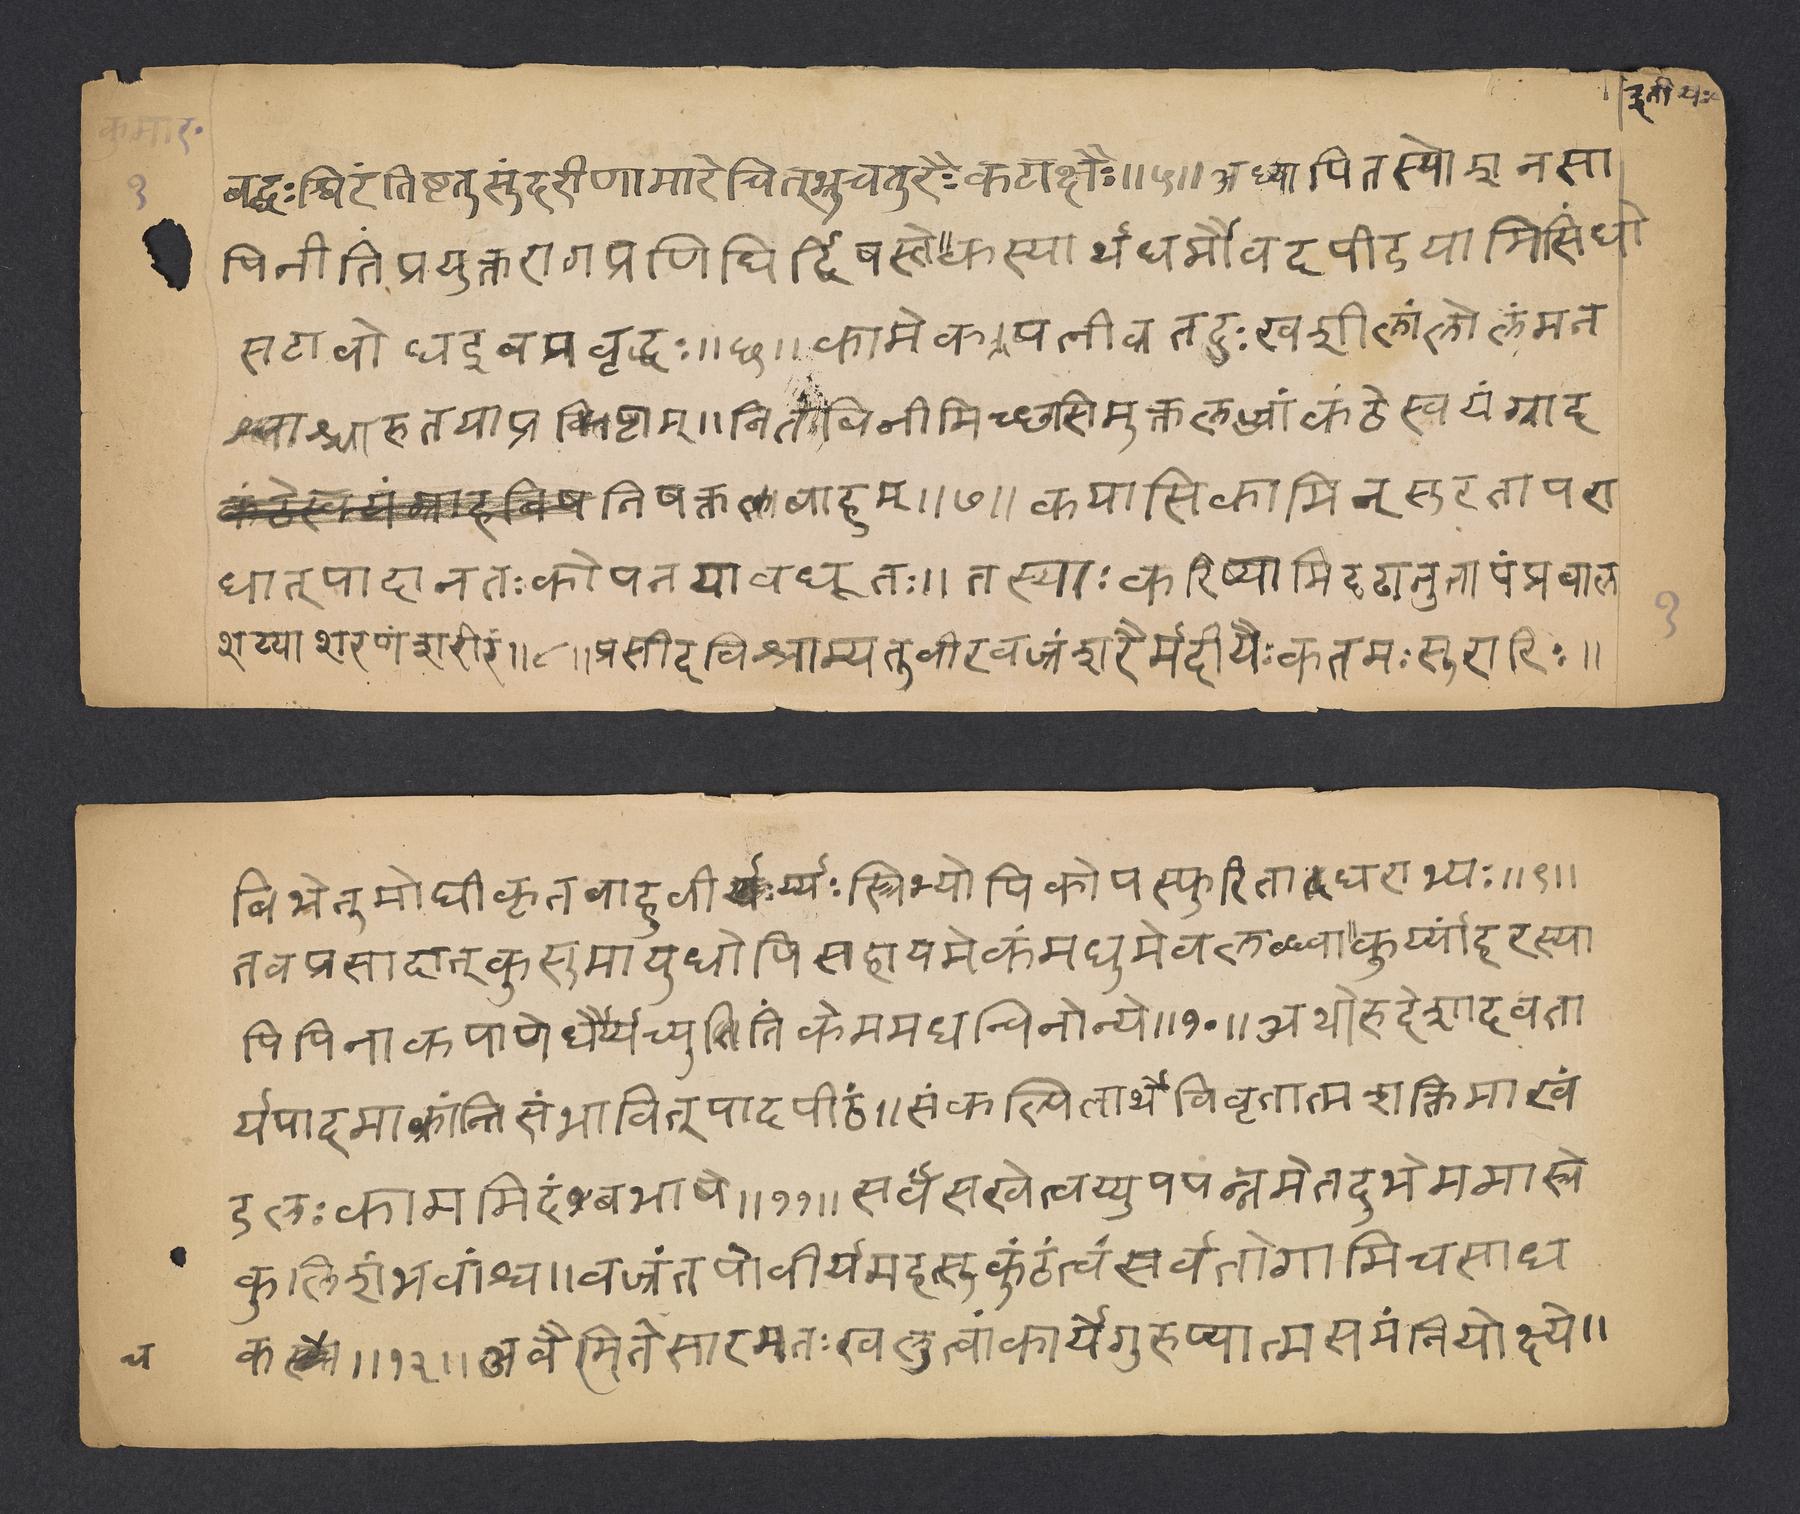 तृतीयः
कुमार॰
१
बद्धःश्चिरंतिष्टतुसुंदरीणामारेचितभ्रुचतुरैःकटाक्षैः॥५॥अध्यापितस्योशनसा
पिनीतिंप्रयुक्तरागप्रणिधिर्द्विषस्ते॥कस्यार्थधर्मौवदपीडयामिसिंधो
स्तटावोघइवप्रवृद्धः॥६॥कामेकपत्नीव्रतदुःखशीलांलोलंमन
श्चारुतयाप्रविष्टाम्॥नितंविनीमिच्छसिमुक्तलज्जांकंठेस्वयंग्राह
निषक्तबाहुम्॥७॥कयासिकामिन्सुरतापरा
धात्पादानतःकोपनयावधूतः॥तस्याःकरिष्यामिदृढानुतापंप्रवाल
शय्याशरणंशरीरं॥८॥प्रसीदविश्राम्यतुवीरवज्रंशरैर्मदीयैःकतमःसुरारिः॥
१
बिभेतुमोघीकृतबाहुवीर्य्यःस्त्रिभ्योपिकोपस्फुरिताधराभ्यः॥९॥
तवप्रसादात्कुसुमायुधोपिसहायमेकंमधुमेवलब्ध्वा॥कुर्य्यांहरस्या
पिपिनाकपाणेर्धैर्य्यच्युतिंकेममधन्विनोन्ये॥१०॥अथोरुदेशादवता
र्यपादमाक्रांन्तिसंभावित्पादपीठं॥संकल्पितार्थेविवृतात्मशक्तिमाखं
डलःकाममिदंबभाषे॥११॥सर्वंसखेत्वय्युपपन्नमेतदुभेममास्त्रे
कुलिशंभवांश्च॥वज्रंतपोवीर्यमहत्सुकुंठंत्वंसर्वतोगामिचसाध
कं च॥१२॥अवैमितेसारमतःखलुत्वांकार्येगुरुण्यात्मसमंनियोक्ष्ये॥